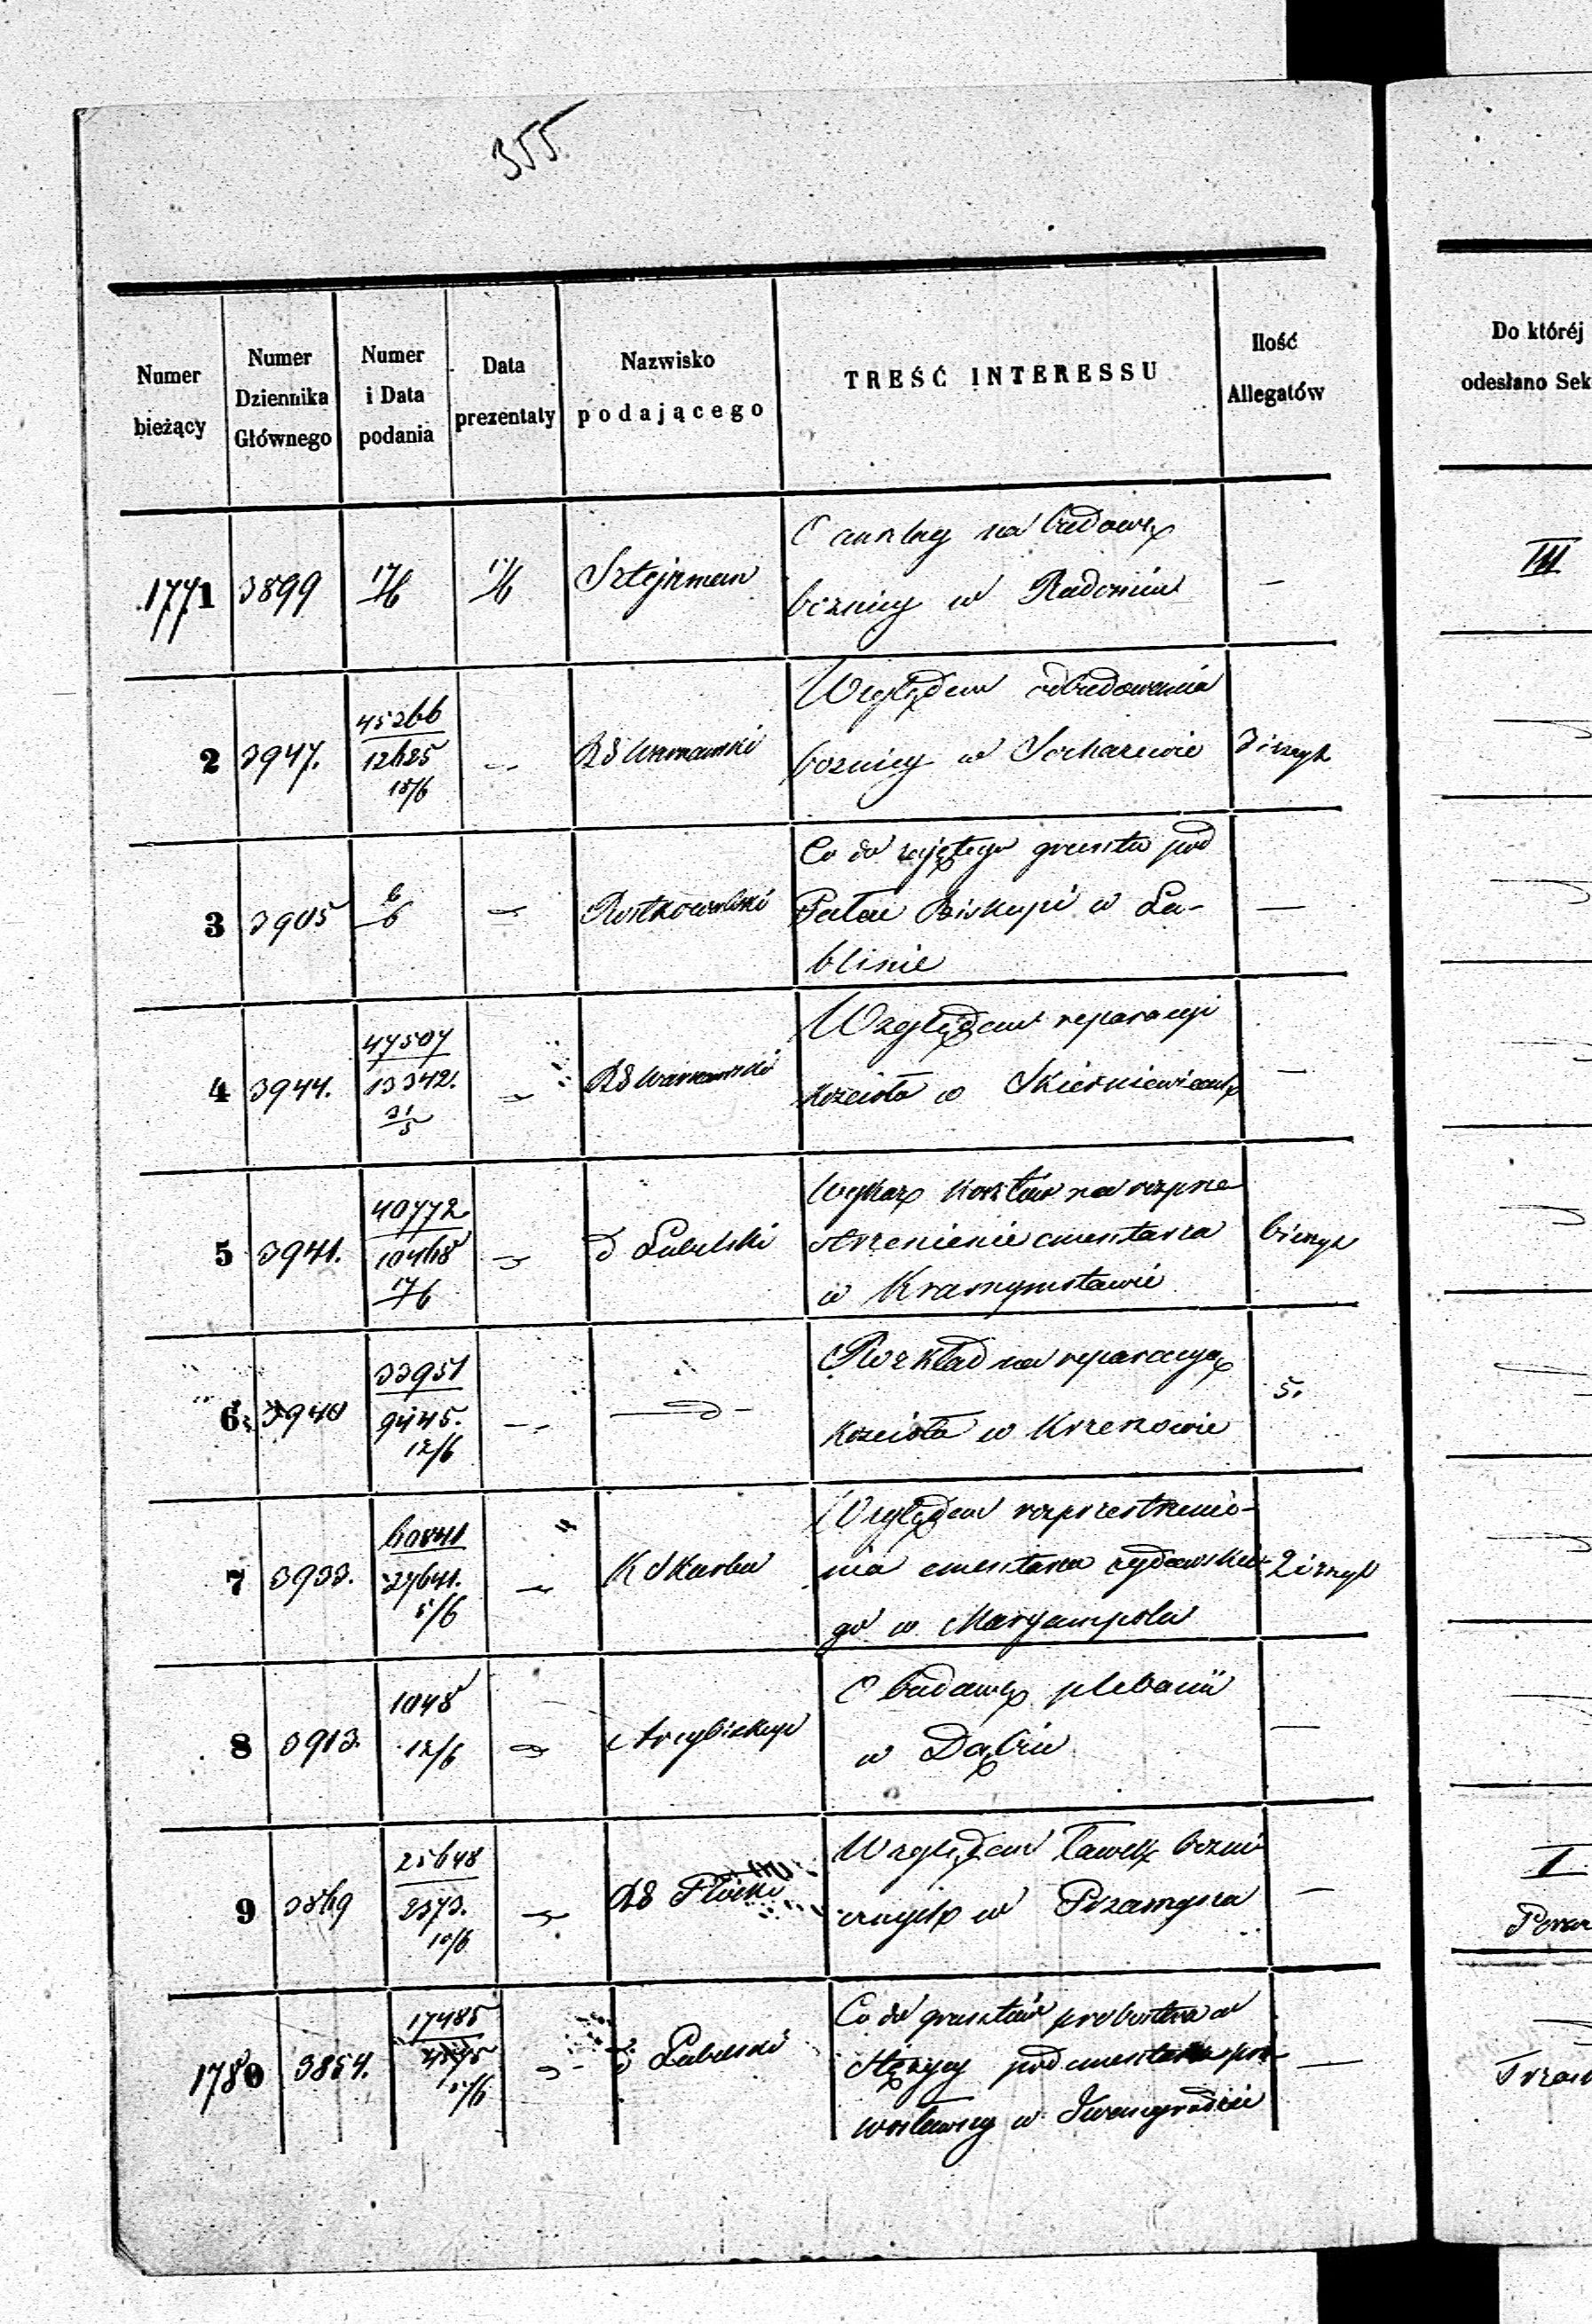 355
Numer bieżący
Numer Dziennika Głównego
Numer i Data podania
Data prezentaty
Nazwisko podającego
TREŚĆ INTERESSU
Ilość Allegatów
Do któréj
odesłano Sek
1771 3899 17/6 17/6 Sztejnman
O na budowę
bożnicy w Radomiu
—
III
2 3947. 45266
12625
15/6
RG Warszawski
Względem odbudowania
bożnicy w Sochaczewie
3
3 3905 6/6
Co do zajętego gruntu pod
Pałac Biskupi w Lu-
blinie
—
4 3944. 47507
13342.
31/5
RG Warszawski
Względem reparacyi
kościoła w Skierniewicach
—
5 3941. 40772
10468
17/6
d Lubelski
Wykaz kosztów na rozprze
strzenienie cmentarza
w Krasnymstawie
6 3940 33951
9445.
12/6
—d—
Rozkład na reparacyą
kościoła w
5.
7 3933. 60841
27641.
5/6
K Skarbu
Względem rozprzestrzenie-
nia cmentarza żydowskie-
go w Maryampolu
2
8 3913. 1048
12/6
Arcybiskup
O budowę plebanii
w Dąbiu
—
9 3869 25648
2373.
10/6
RG Płocki
Względem ławek bożni
cznych w Przasnysza
—
I
1780 3854. 17485
5/6
d Lubelski
Co do gruntów probostwa w
Stężycy pod cmentarz pra-
wosławny w Iwangrodzie
—